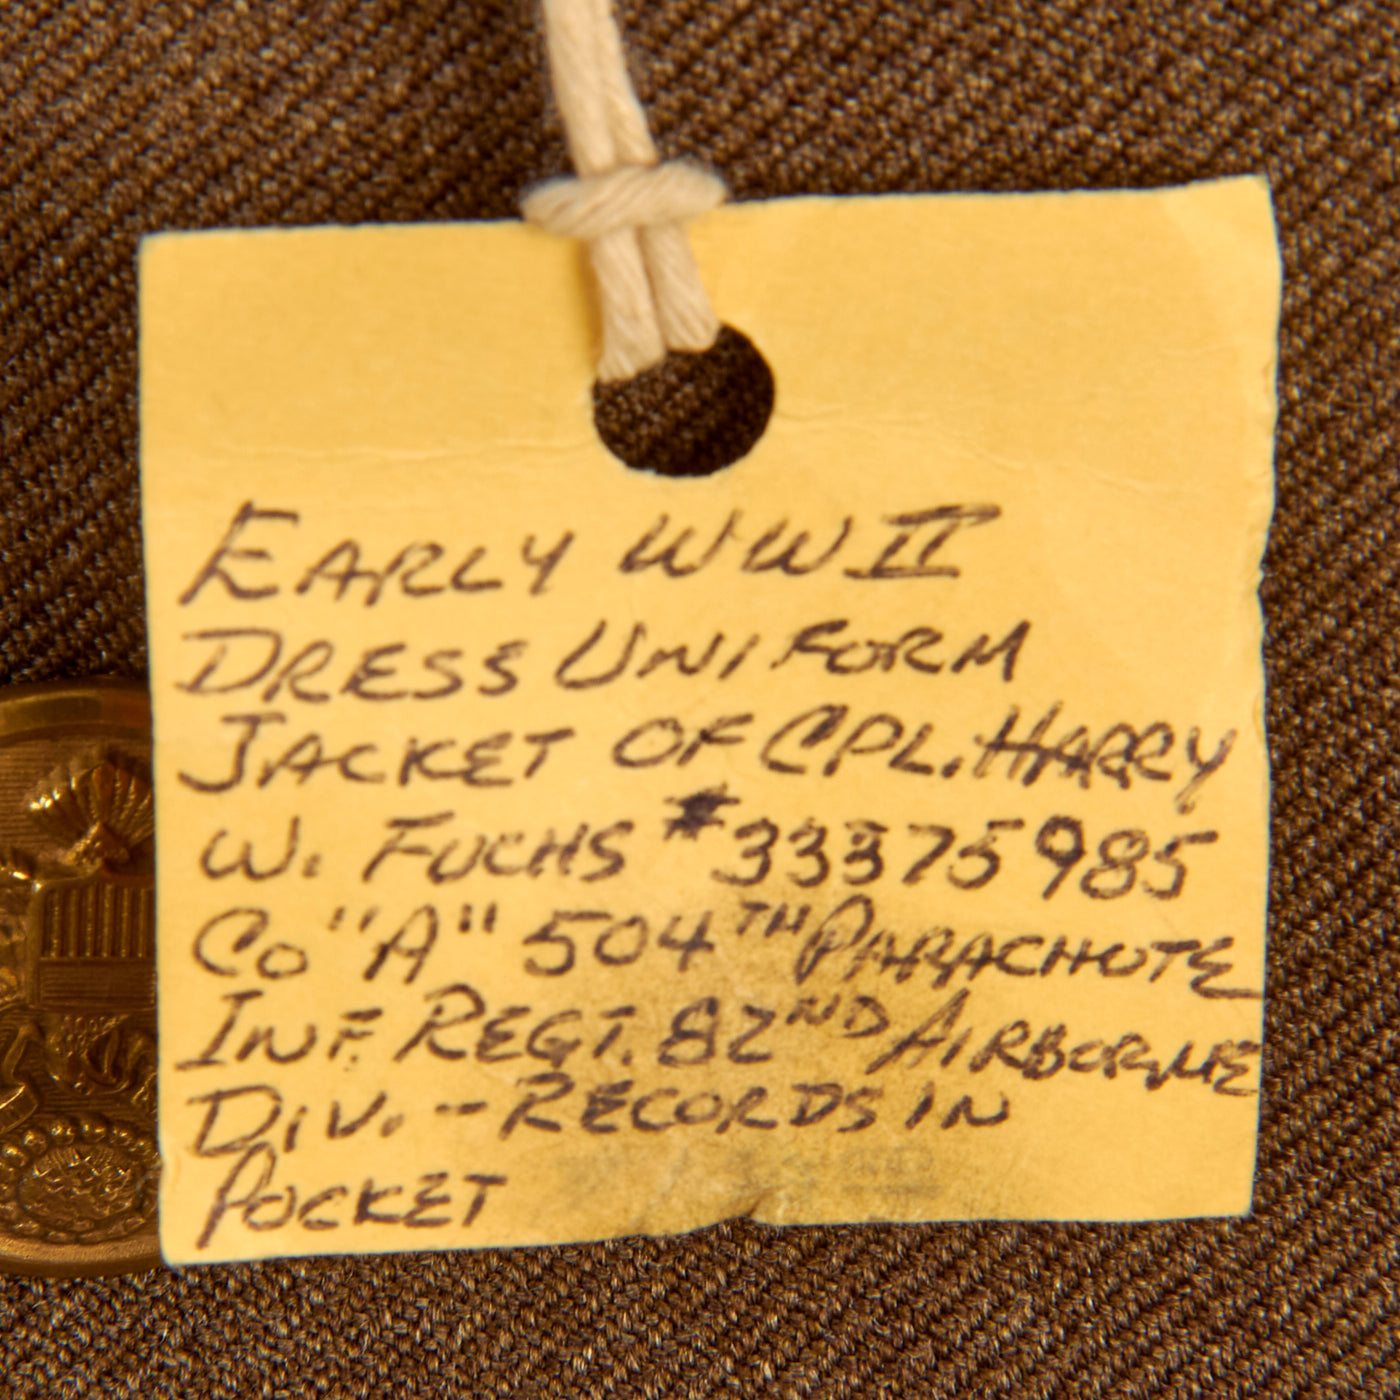 EARLY WWII
DRESS UNIFORM
JACKET OF CPL. HARRY
W. FUCHS #33375985
Co "A" 504TH PARACHUTE
INF. REGT. 82ND AIRBORNE
DIV. -- RECORDS IN
POCKET